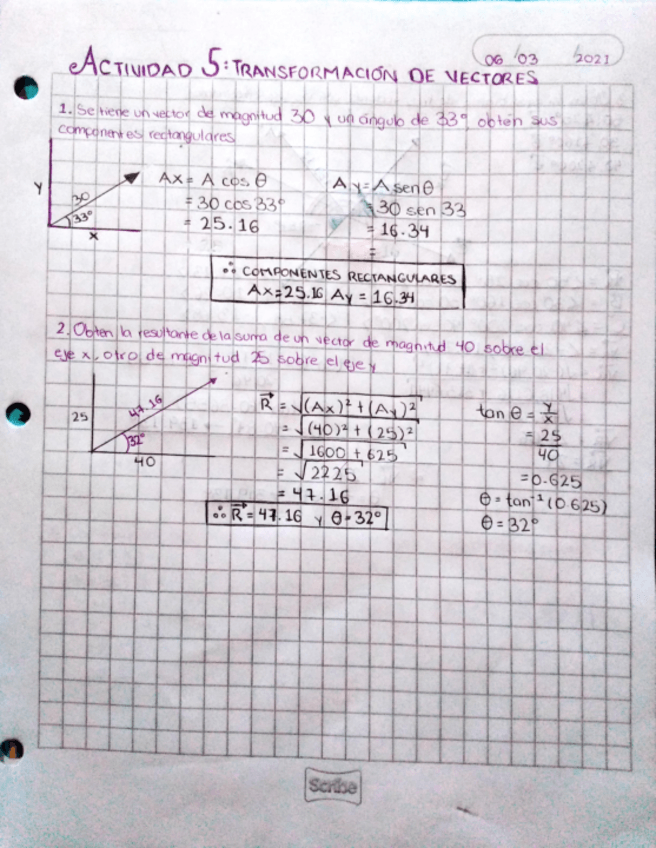 06 /03 /2021
ACTIVIDAD 5: TRANSFORMACIÓN DE VECTORES
1. Se tiene un vector de magnitud 30 y un ángulo de 33° obtén sus
componentes rectangulares
Y
30
33°
x
Ax = A cos θ
= 30 cos 33°
= 25.16
Ay = A sen θ
= 30 sen 33
= 16.34
=
∴ COMPONENTES RECTANGULARES
Ax = 25.16 Ay = 16.34
2. Obten la resultante de la suma de un vector de magnitud 40 sobre el
eje x, otro de magnitud 25 sobre el eje y
25
47.16
32°
40
R⃗ = √(Ax)² + (Ay)²
= √(40)² + (25)²
= √1600 + 625
= √2225
= 47.16
∴ R⃗ = 47.16 y θ = 32°
tan θ = y/x
= 25/40
= 0.625
θ = tan⁻¹ (0.625)
θ = 32°
Scribe